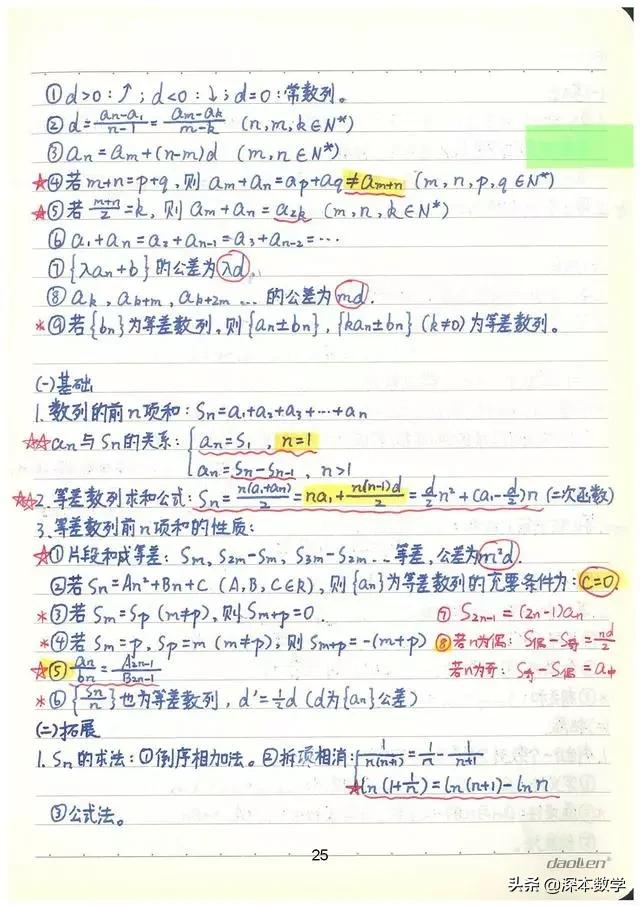 ①d>0:↗; d<0:↓; d=0:常数列。
②d=(an-a1)/(n-1)=(am-ak)/(m-k) (n,m,k∈N*)
③an=am+(n-m)d (m,n∈N*)
☆④若m+n=p+q,则am+an=ap+aq≠am+n (m,n,p,q∈N*)
☆⑤若(m+n)/2=k,则am+an=a2k (m,n,k∈N*)
⑥a1+an=a2+an-1=a3+an-2=…
⑦{λan+b}的公差为λd.
⑧ak, ak+m, ak+2m …的公差为md.
*⑨若{bn}为等差数列,则{an±bn},{kan±bn}(k≠0)为等差数列。
(一)基础
1.数列的前n项和:Sn=a1+a2+a3+…+an
☆☆an与Sn的关系:{an=S1, n=1
an=Sn-Sn-1, n>1
☆☆2.等差数列求和公式:Sn=n(a1+an)/2=na1+n(n-1)d/2=d/2n²+(a1-d/2)n(二次函数)
3.等差数列前n项和的性质:
☆①片段和成等差:Sm, S2m-Sm, S3m-S2m…等差,公差为m²d.
②若Sn=An²+Bn+C (A,B,C∈R),则{an}为等差数列的充要条件为:C=0.
*③若Sm=Sp (m≠p),则Sm+p=0 ⑦S2n-1=(2n-1)an
*④若Sm=p,Sp=m (m≠p),则Sm+p=-(m+p) ⑧若n为偶:S偶-S奇=nd/2
☆⑤an/bn=A2n-1/B2n-1 若n为奇:S奇-S偶=a中
*⑥{Sn/n}也为等差数列,d'=½d (d为{an}公差)
(二)拓展
1.Sn的求法:①倒序相加法。②拆项相消:{1/n(n+1)=1/n-1/(n+1)
☆ln(1+1/n)=ln(n+1)-ln n
③公式法。
25
daolen
头条@深本数学